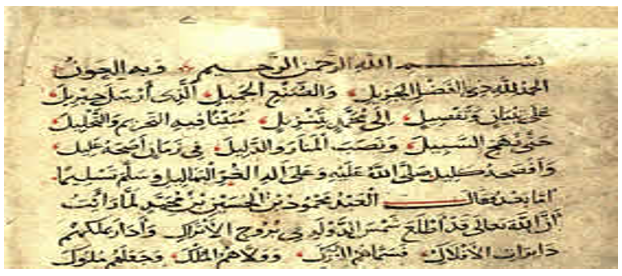 بسم الله الرحمن الرحيم وبه العون
الحمد لله ذي الفضل الجزيل والصنع الجميل الذي أرسل جبريل
على تبيان وتفصيل إلى محمد بتنزيل مبينا فيه التحريم والتحليل
حتى نهج السبيل ونصب المنار والدليل في زمان أصحه عليل
وأفصحه كليل صلى الله عليه وعلى آله الغر البهاليل وسلم تسليما
أما بعد فقال العبد محمود بن الحسين بن محمد لما رأيت
أن الله تعالى قد أطلع شمس الدولة في بروج الأتراك وأدار بملكهم
دائرات الأفلاك فسماهم الترك وولاهم الملك وجعلهم ملوك